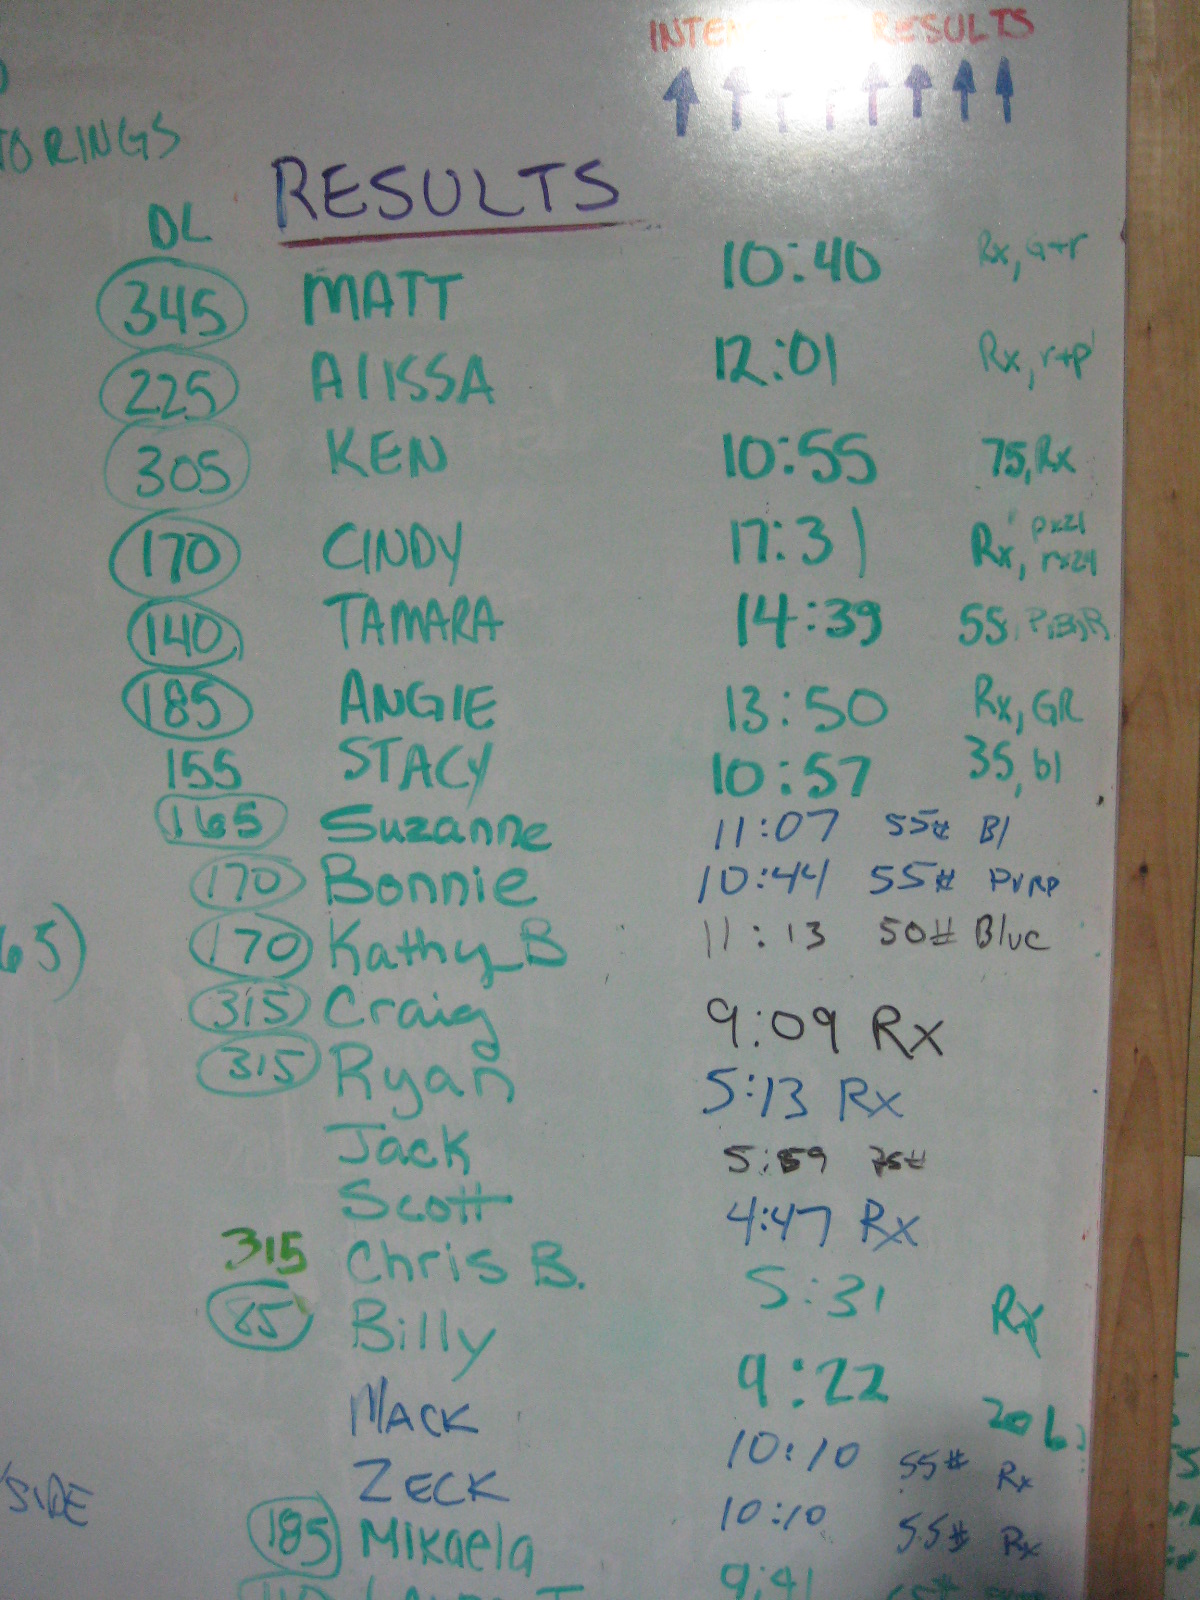 RESULTS
TO RINGS
RESULTS
DL
345 MATT 10:40 Rx, G+r
225 AlISSA 12:01 Rx, r+p
305 KEN 10:55 75, Rx
170 CINDY 17:31 Rx, px21 rx24
140 TAMARA 14:39 55,
185 ANGIE 13:50 Rx, GR
155 STACY 10:57 35, bl
165 Suzanne 11:07 55# Bl
170 Bonnie 10:44 55# PURP
170 Kathy B 11:13 50# Blue
315 Craig 9:09 Rx
315 Ryan 5:13 Rx
Jack 5:59 75#
Scott 4:47 Rx
315 Chris B. 5:31 Rx
85 Billy 9:22 20
MACK 10:10 55# Rx
ZECK 10:10 55# Rx
SIDE
185 Mikaela 9:41